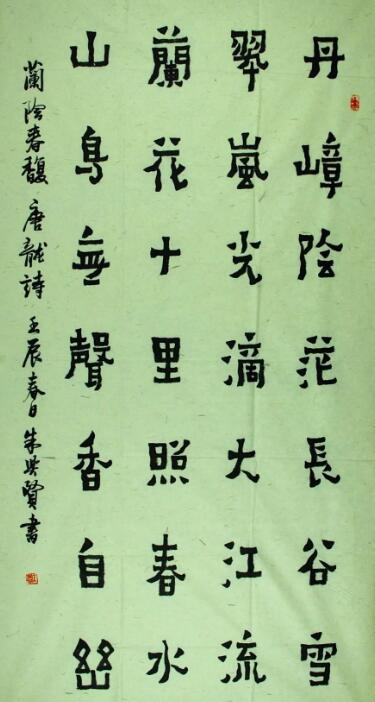 丹嶂陰茫長谷雪
翠嵐光滴大江流
蘭花十里照春水
山鳥無聲香自幽
蘭陰春馥 唐龍詩 壬辰春日 朱興賢書